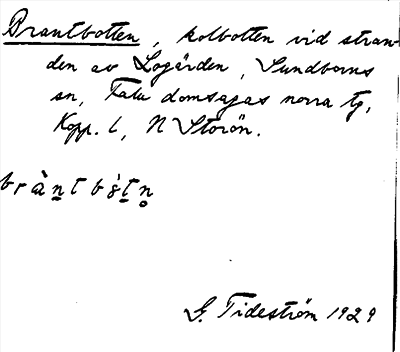 Brantbotten, kolbotten vid stran-
den av Logården, Sundborns
sn, Falu domsagas norra tg,
Kopp. l, N Storön.
bràntbòtn̥
G. Tideström 1929